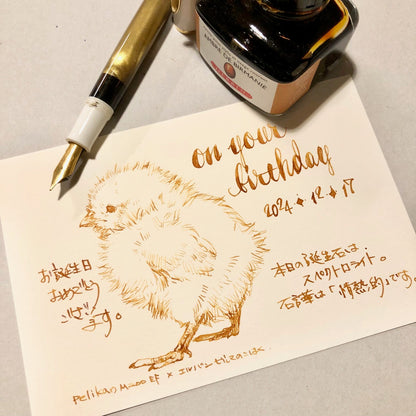 AMBRE DE BIRMANIE
on your
birthday
2024・12・17
お誕生日
おめでとう
ござい
ます。
本日の誕生石は
スペクトロライト。
石言葉は「情熱的」です。
Pelikan M200 EF × エルバン ビルマのこはく